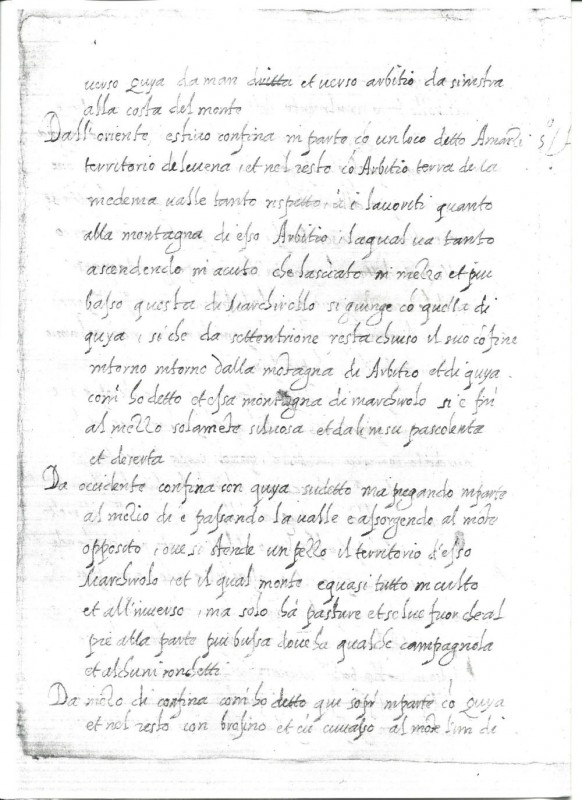 verso quya da man dritta et verso arbitio da sinestra
alla costa del monte
Dall'oriente, estivo confina in parte cõ un loco detto
territorio de levena, et nel resto cõ Arbitio terra de la
medema valle tanto rispetto à i lavoriti quanto
alla montagna di esso Arbitio, laqual va tanto
ascendendo in acuto che lasciato in mezzo et piu
basso questa di Marchirollo si giunge cõ quella di
quya, siche da settentrione resta chiuso il suo cõfine
intorno intorno dalla mõtagna di Arbitio et di quya
com'ho detto et essa montagna di marchirolo si è
al mezzo solamẽte silvosa et da li insu pascolenta
et deserta
Da occidente confina con quya sudetto ma piegando inparte
al mezo di e passando la valle e assorgendo al mõte
opposito, ove si stende un pezzo il territorio d'esso
Marchirolo, et il qual monte e quasi tutto inculto
et all'inverso, ma solo ha pasture et selve fuor che al
piè alla parte piu bassa dove ha qualche campagnola
et alchuni ronchetti
Da mezo di confina com'ho detto qui sopra inparte cõ quya
et nel resto con brosino et al mõte